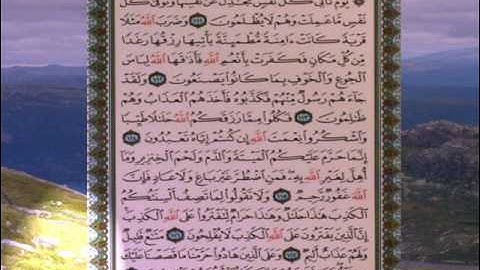 ۞ يَوْمَ تَأْتِي كُلُّ نَفْسٍ تُجَادِلُ عَن نَّفْسِهَا وَتُوَفَّىٰ كُلُّ
نَفْسٍ مَّا عَمِلَتْ وَهُمْ لَا يُظْلَمُونَ ١١١ وَضَرَبَ اللَّهُ مَثَلًا
قَرْيَةً كَانَتْ ءَامِنَةً مُّطْمَئِنَّةً يَأْتِيهَا رِزْقُهَا رَغَدًا
مِّن كُلِّ مَكَانٍ فَكَفَرَتْ بِأَنْعُمِ اللَّهِ فَأَذَاقَهَا اللَّهُ لِبَاسَ
الْجُوعِ وَالْخَوْفِ بِمَا كَانُوا يَصْنَعُونَ ١١٢ وَلَقَدْ
جَاءَهُمْ رَسُولٌ مِّنْهُمْ فَكَذَّبُوهُ فَأَخَذَهُمُ الْعَذَابُ وَهُمْ
ظَالِمُونَ ١١٣ فَكُلُوا مِمَّا رَزَقَكُمُ اللَّهُ حَلَالًا طَيِّبًا
وَاشْكُرُوا نِعْمَتَ اللَّهِ إِن كُنتُمْ إِيَّاهُ تَعْبُدُونَ ١١٤
إِنَّمَا حَرَّمَ عَلَيْكُمُ الْمَيْتَةَ وَالدَّمَ وَلَحْمَ الْخِنزِيرِ وَمَا
أُهِلَّ لِغَيْرِ اللَّهِ بِهِ فَمَنِ اضْطُرَّ غَيْرَ بَاغٍ وَلَا عَادٍ فَإِنَّ
اللَّهَ غَفُورٌ رَّحِيمٌ ١١٥ وَلَا تَقُولُوا لِمَا تَصِفُ أَلْسِنَتُكُمُ
الْكَذِبَ هَٰذَا حَلَالٌ وَهَٰذَا حَرَامٌ لِّتَفْتَرُوا عَلَى اللَّهِ الْكَذِبَ
إِنَّ الَّذِينَ يَفْتَرُونَ عَلَى اللَّهِ الْكَذِبَ لَا يُفْلِحُونَ ١١٦ مَتَاعٌ قَلِيلٌ
وَلَهُمْ عَذَابٌ أَلِيمٌ ١١٧ وَعَلَى الَّذِينَ هَادُوا حَرَّمْنَا مَا قَصَصْنَا عَلَيْكَ